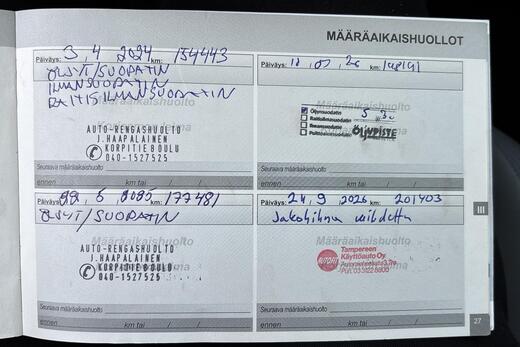 MÄÄRÄAIKAISHUOLLOT
Päiväys: 3, 4 2024 km: 154443
ÖLJYT/SUODATIN
ILMANSUODATIN
RAITISILMANSUODATIN
Määräaikaishuolto
AUTO-RENGASHUOLTO
J.HAAPALAINEN
KORPITIE 8 OULU
040-1527525
Seuraava määräaikaishuolto
ennen / / km tai
Päiväys: km:
Määräaikaishuolto
Öljynsuodatin 5-30
Raitisilmansuodatin
Ilmansuodatin
Polttoainesuodatin
ÖLJYPISTE
Seuraava määräaikaishuolto
ennen / / km tai
Päiväys: 22, 5 2025 km: 177481
ÖLJYT/SUODATIN
Määräaikaishuolto
AUTO-RENGASHUOLTO
J.HAAPALAINEN
KORPITIE 8 OULU
040-1527525
Seuraava määräaikaishuolto
ennen / / km tai
Päiväys: 24, 9 2026 km: 201403
Jakohihna vaihdettu
Määräaikaishuolto
Tampereen
Käyttöauto Oy
Seuraava määräaikaishuolto
ennen / / km tai
III
27